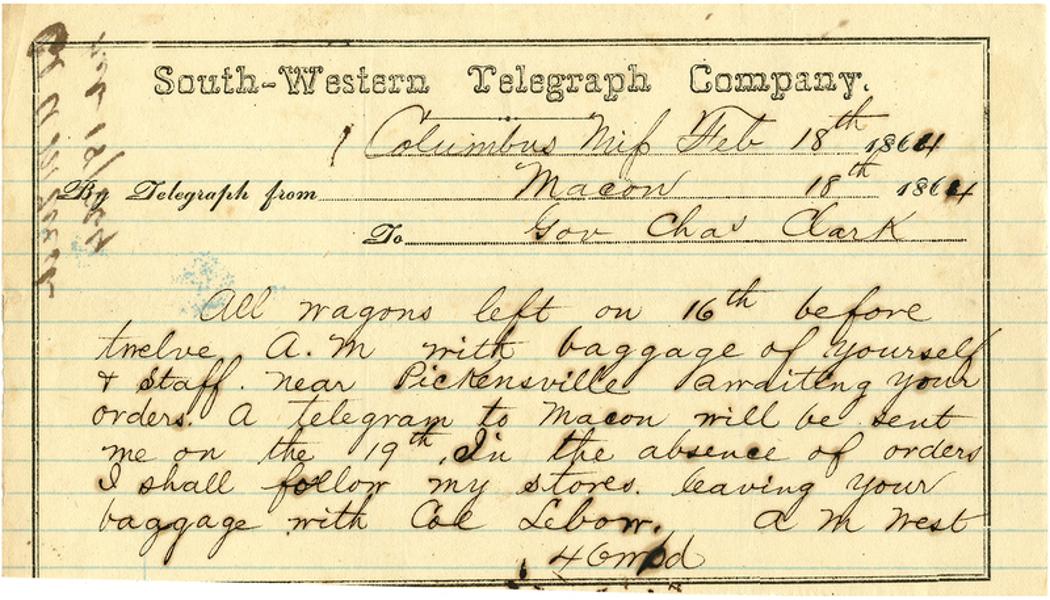 South-Western Telegraph Company.
Columbus Miss Feb 18th 1864
By Telegraph from Macon 18th 1864
To Gov Chas Clark
All wagons left on 16th before
twelve A.M with baggage of yourself
& staff. near Pickensville awaiting your
orders. A telegram to Macon will be sent
me on the 19th. In the absence of orders
I shall follow my stores. leaving your
baggage with Col Lebow. A M West